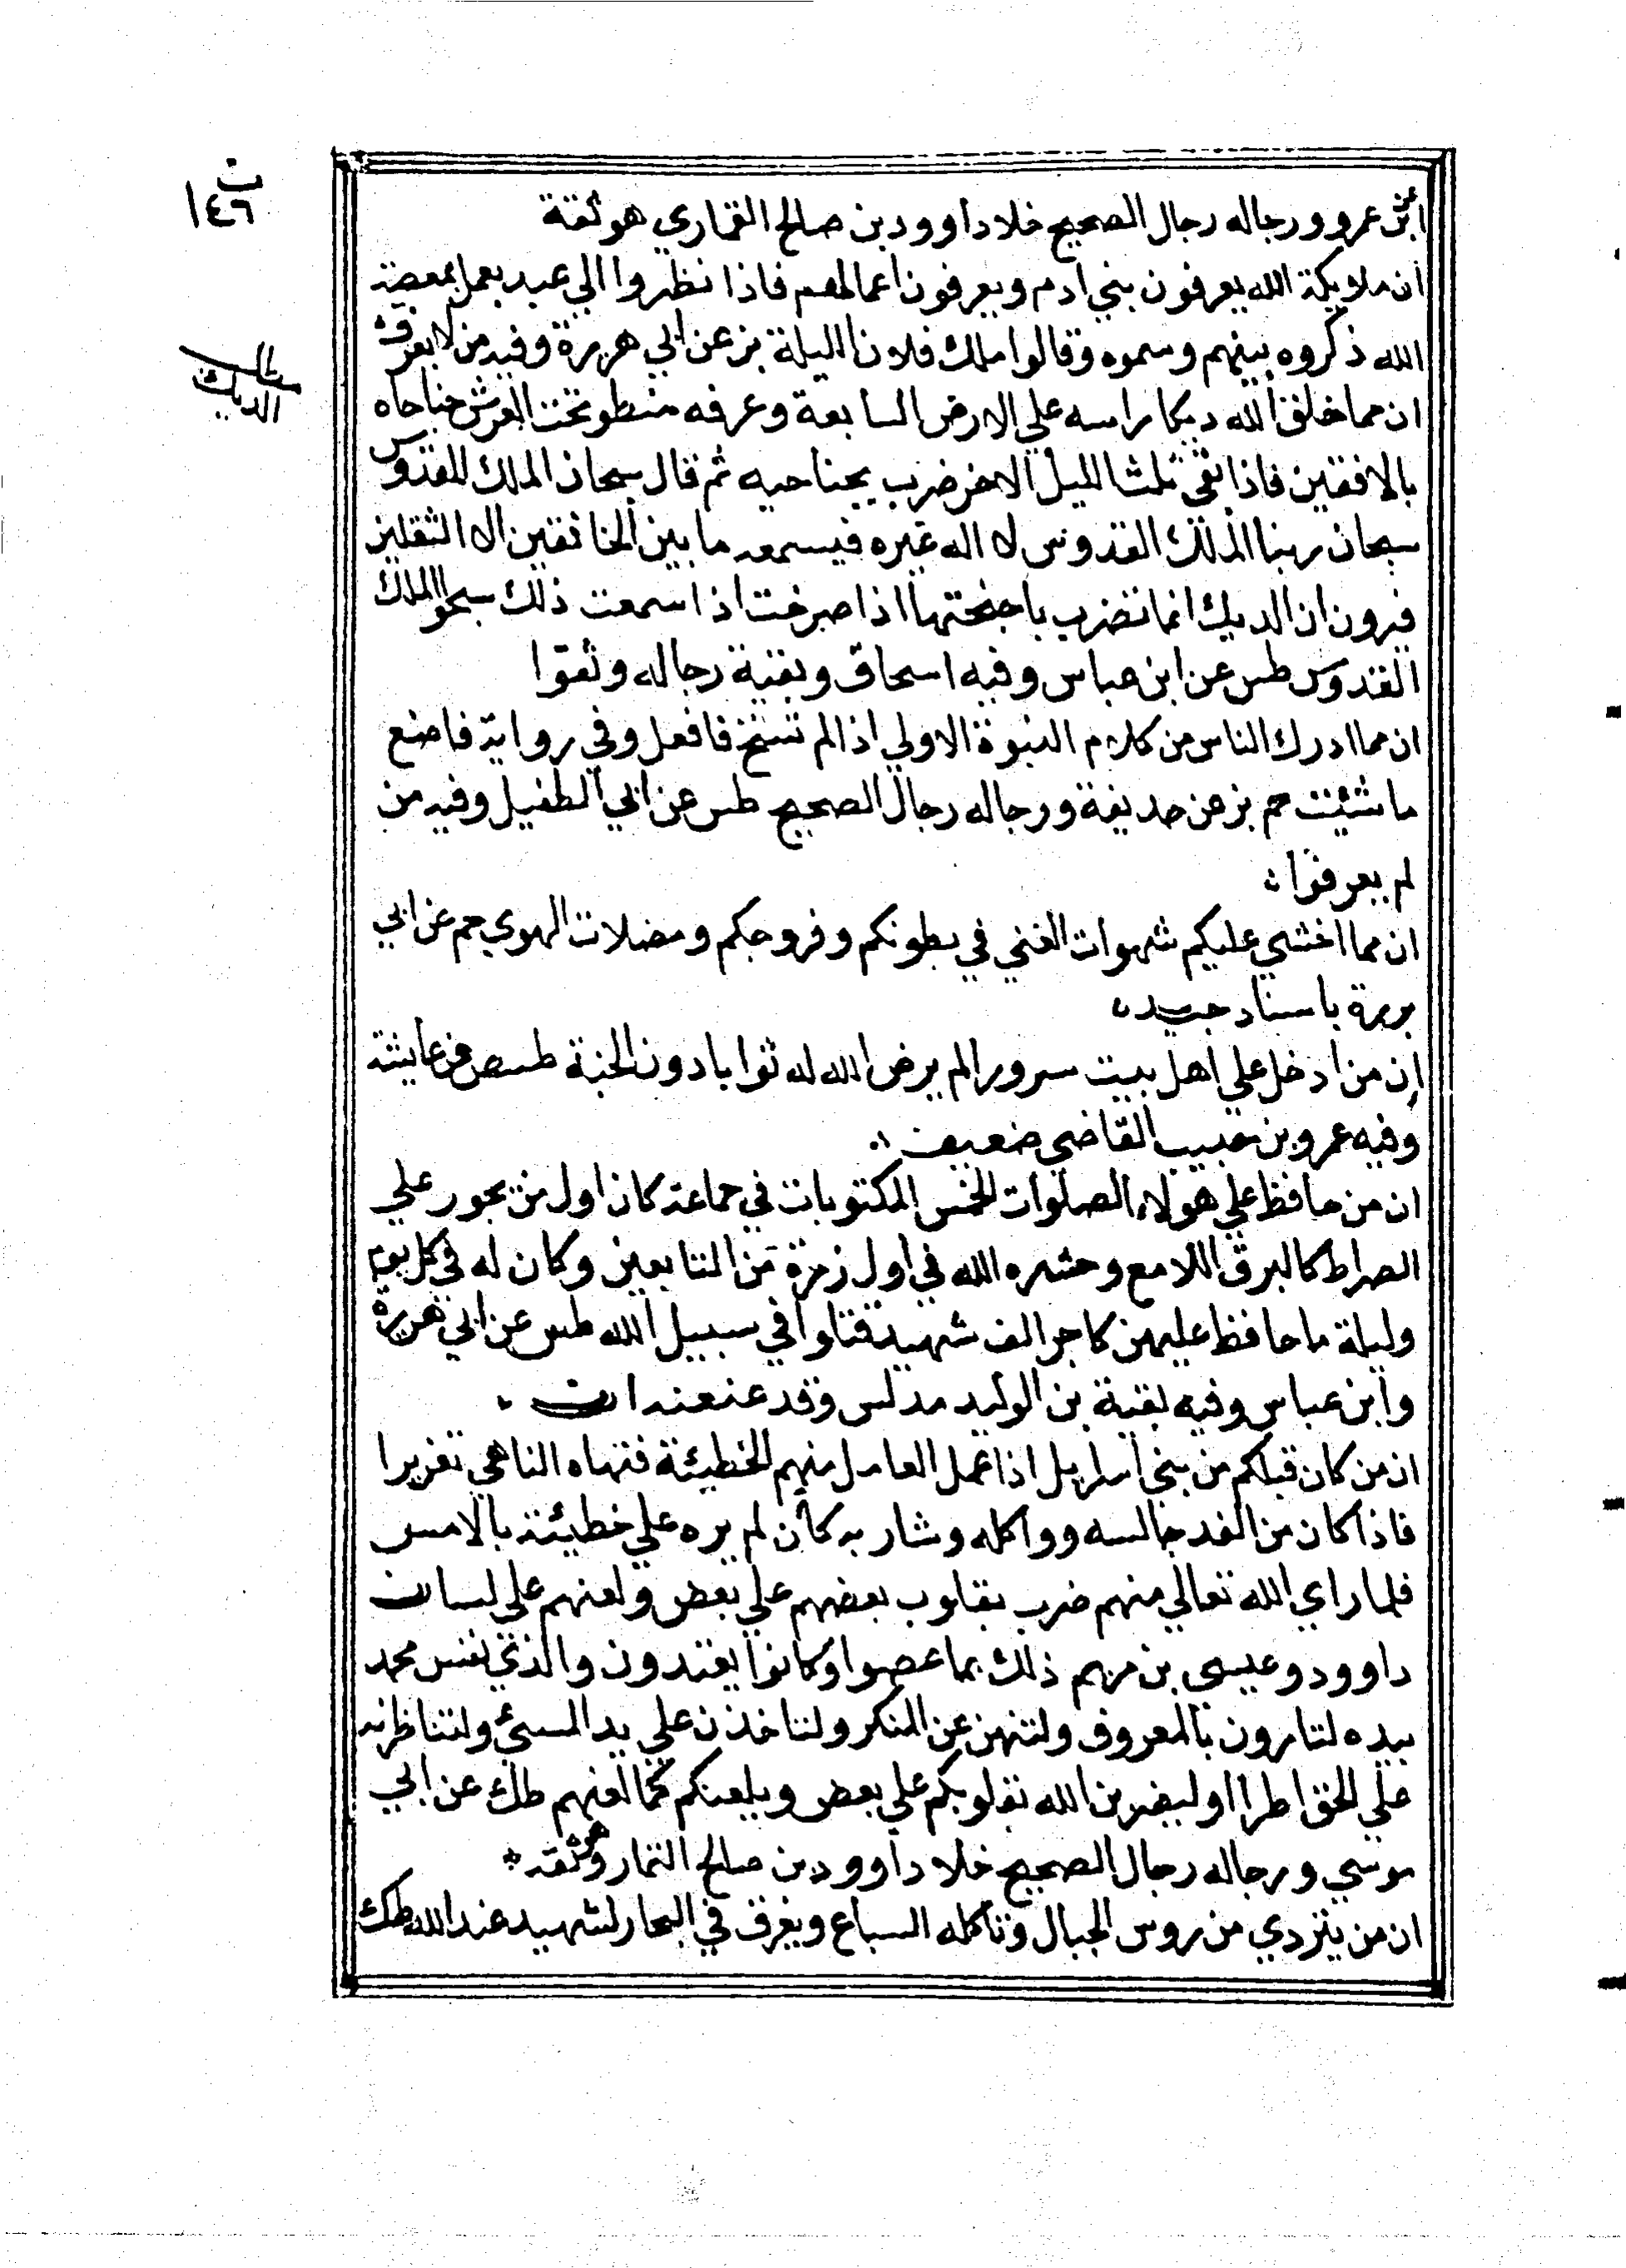 ت
١٤٦
الديك
ابن عمرو ورجاله رجال الصحيح خلا داوود بن صالح القماري هو ثقة
ان ملايكة الله يعرفون بني ادم ويعرفون اعمالهم فاذا نظروا الي عبد يعمل بمعصية
الله ذكروه بينهم وسموه وقالوا هلك فلان الليلة بز عن ابي هريرة وفيه من لا يعرف
ان مما خلق الله ديكا راسه علي الارض السابعة وعرفه منطو تحت العرش جناحاه
بالافقين فاذا بقي ثلث الليل الاخر ضرب بجناحيه ثم قال سبحان الملك القدوس
سبحان ربنا الملك القدوس لا اله غيره فيسمعه ما بين الخافقين الا الثقلين
فيرون ان الديك انما تضرب باجنحتها اذا صرخت اذا سمعت ذلك سبحوا الملك
القدوس طس عن ابن عباس وفيه اسحاق وبقية رجاله وثقوا
ان مما ادرك الناس من كلام النبوة الاولي اذا لم تستح فافعل وفي رواية فاصنع
ما شئت حم بز عن حديفة ورجاله رجال الصحيح طس عن ابي الطفيل وفيه من
لم يعرفوا
ان مما اخشي عليكم شهوات الغني في بطونكم وفروجكم ومضلات الهوي حم عن ابي
بريرة باسناد جيد
ان من ادخل علي اهل بيت سرورا لم يرض الله له ثوابا دون الجنة طسص عن عايشة
وفيه عمرو بن حبيب القاضي ضعيف
ان من حافظ علي هولاء الصلوات الخمس المكتوبات في جماعة كان اول من يجور علي
الصراط كالبرق اللامع وحشره الله في اول زمرة من التابعين وكان له في كل يوم
وليلة ما حافظ عليهن كاجر الف شهيد قتلوا في سبيل الله طس عن ابي هريرة
وابن عباس وفيه بقية بن الوليد مدلس وقد عنعنه
ان من كان قبلكم من بني اسرايل اذا عمل العامل منهم الخطيئة فنهاه الناهي تعزيرا
فاذا كان من الغد جالسه وواكله وشاربه كان لم يره علي خطيئة بالامس
فلما راي الله تعالي منهم ضرب بقلوب بعضهم علي بعض ولعنهم علي لسان
داوود وعيسي بن مريم ذلك بما عصوا وكانوا يعتدون والذي نفس محمد
بيده لتامرون بالمعروف ولتنهن عن المنكر ولتاخذن علي يد المسئ ولتناظرنه
علي الحق اطرا او ليضربن الله بقلوبكم علي بعض ويلعنكم كما لعنهم طك عن ابي
موسي ورجاله رجال الصحيح خلا داوود بن صالح التمار وهو ثقة
ان من يتردي من روس الجبال وتاكله السباع ويغرق في البحار لشهيد عند الله طك